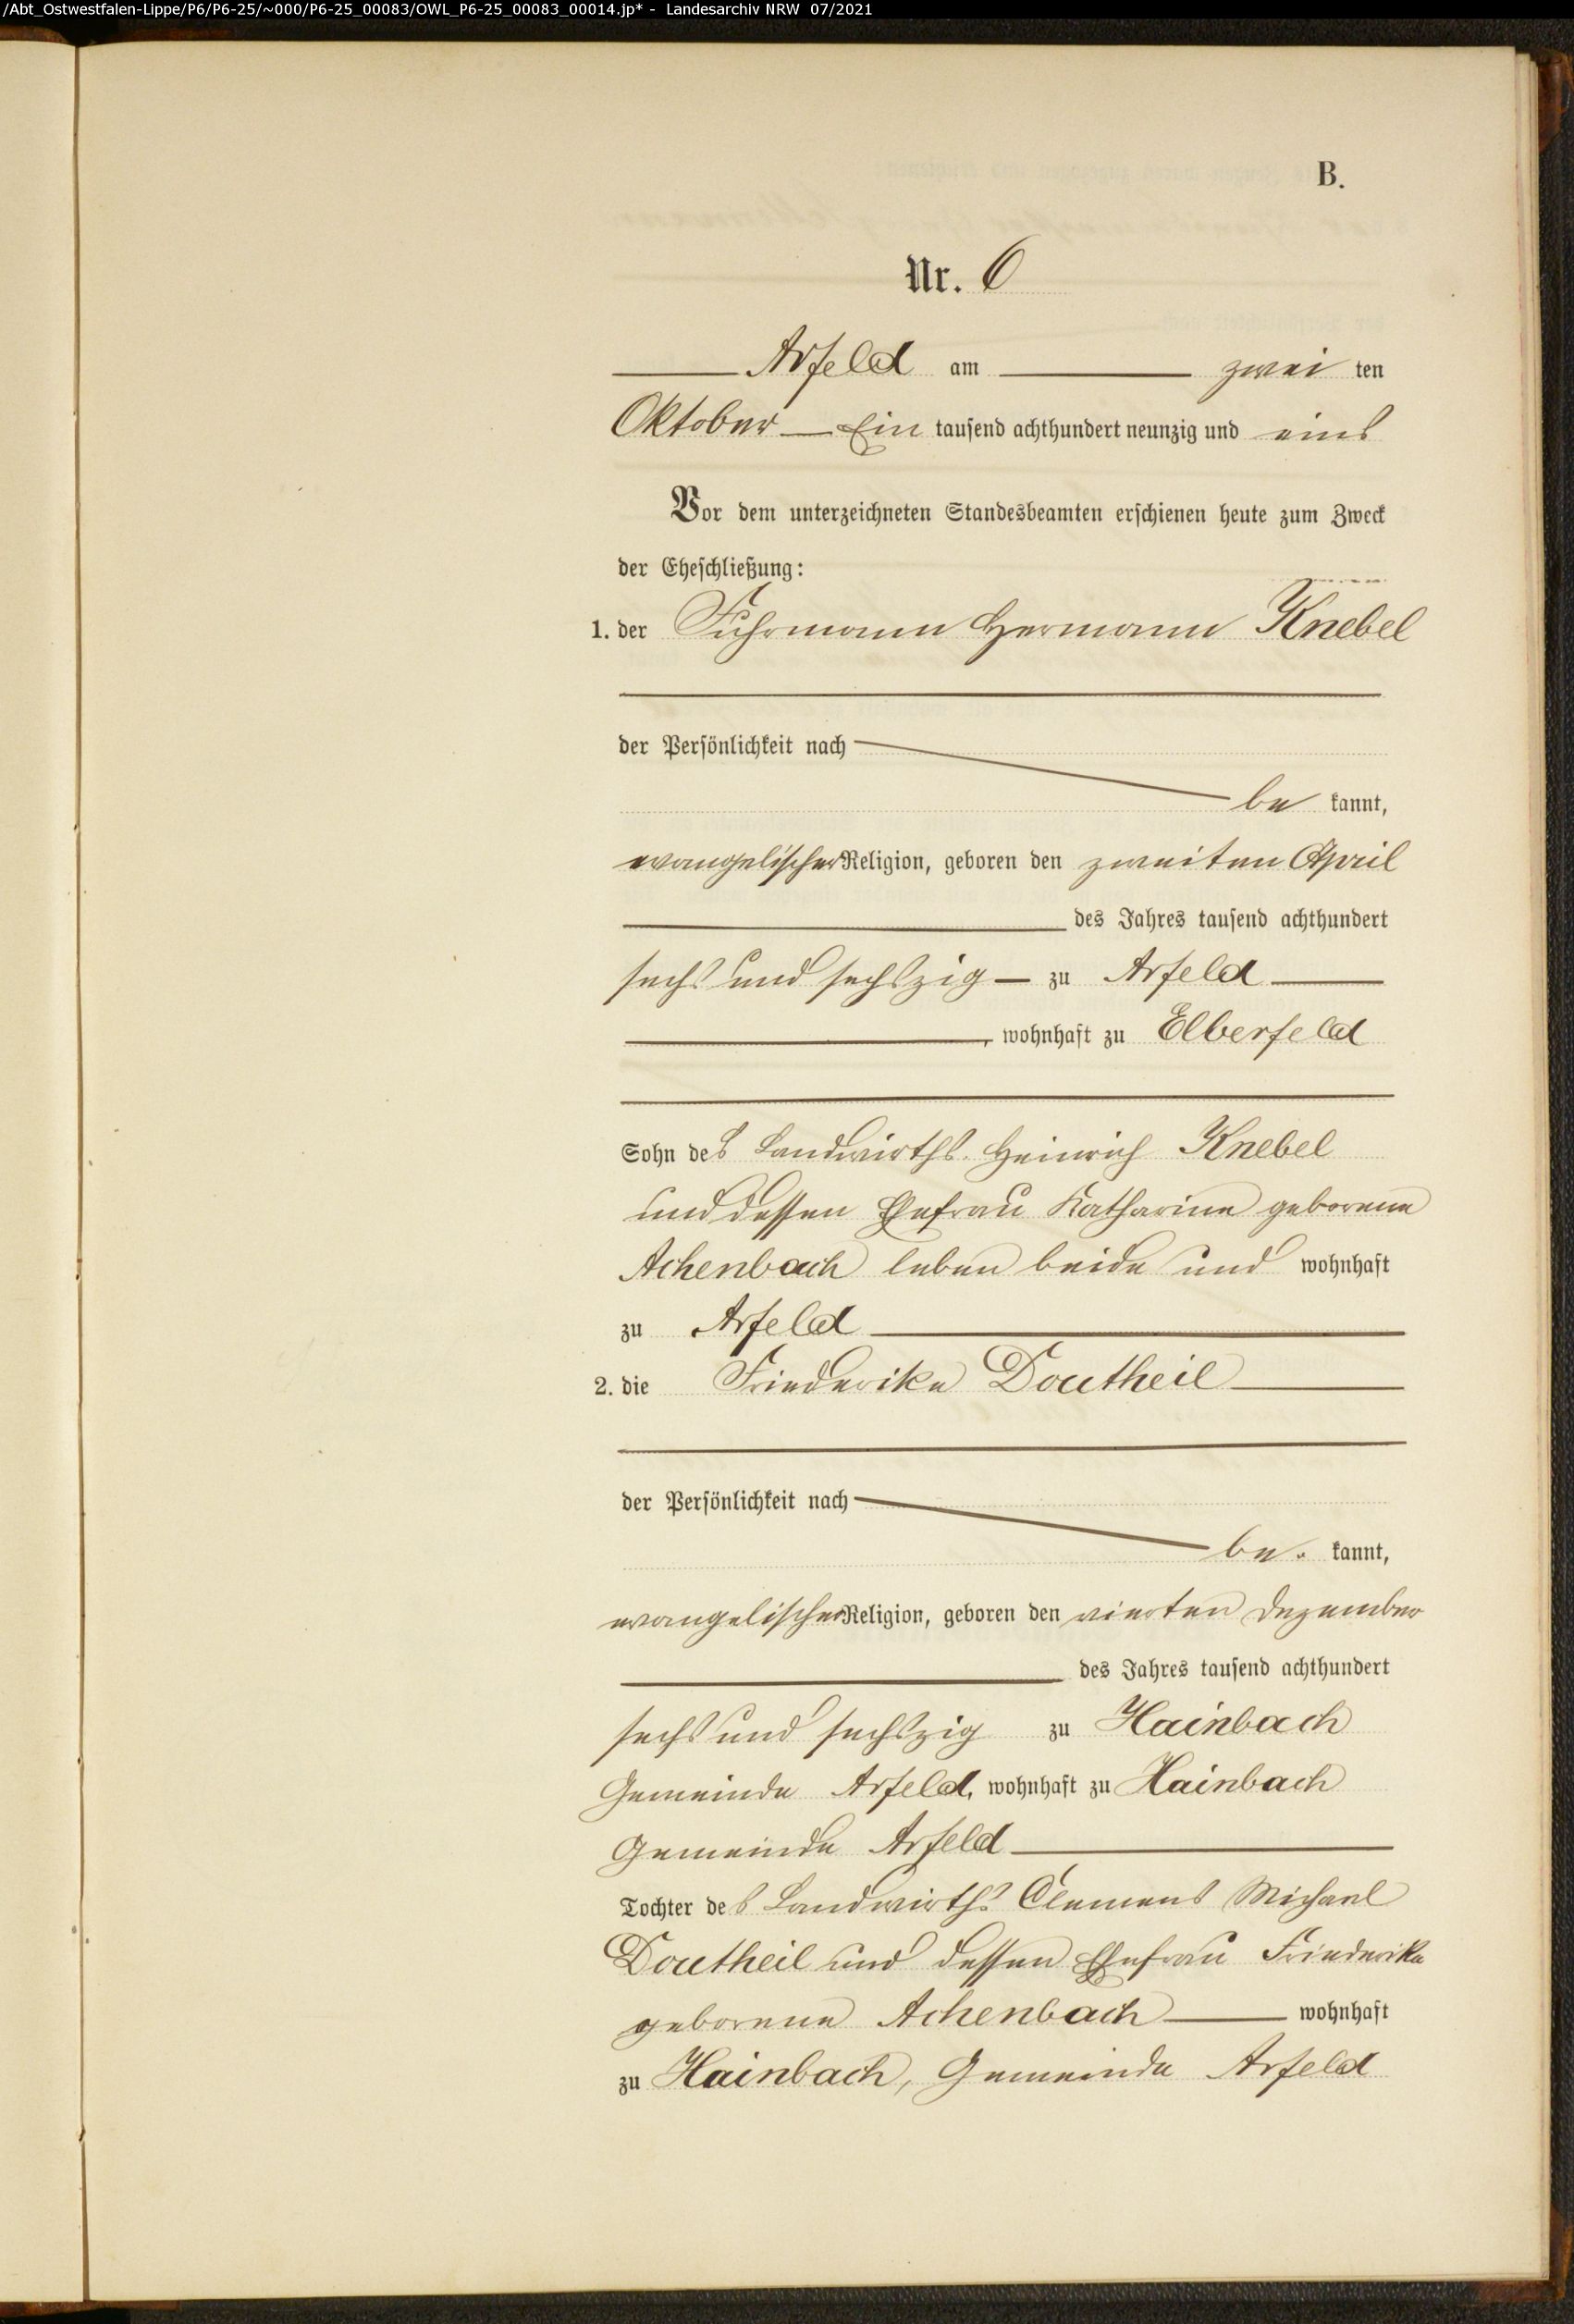 /Abt_Ostwestfalen-Lippe/P6/P6-25/~000/P6-25_00083/OWL_P6-25_00083_00014.jp* - Landesarchiv NRW 07/2021
B.
Nr. 6
Arfeld am zwei ten
Oktober — Ein tausend achthundert neunzig und eins
Vor dem unterzeichneten Standesbeamten erschienen heute zum Zweck
der Eheschließung:
1. der Fuhrmann Hermann Knebel
der Persönlichkeit nach
be kannt,
evangelischer Religion, geboren den zweiten April
des Jahres tausend achthundert
sechs und sechszig — zu Arfeld
, wohnhaft zu Elberfeld
Sohn des Landwirths Heinrich Knebel
und dessen Ehefrau Katharine geborene
Achenbach leben beide und wohnhaft
zu Arfeld
2. die Friederike Doutheil
der Persönlichkeit nach
be. kannt,
evangelischer Religion, geboren den vierten Dezember
des Jahres tausend achthundert
sechs und sechszig zu Hainbach
Gemeinde Arfeld, wohnhaft zu Hainbach
Gemeinde Arfeld
Tochter des Landwirths Clemens Michael
Doutheil und dessen Ehefrau Friederike
geborene Achenbach — wohnhaft
zu Hainbach, Gemeinde Arfeld